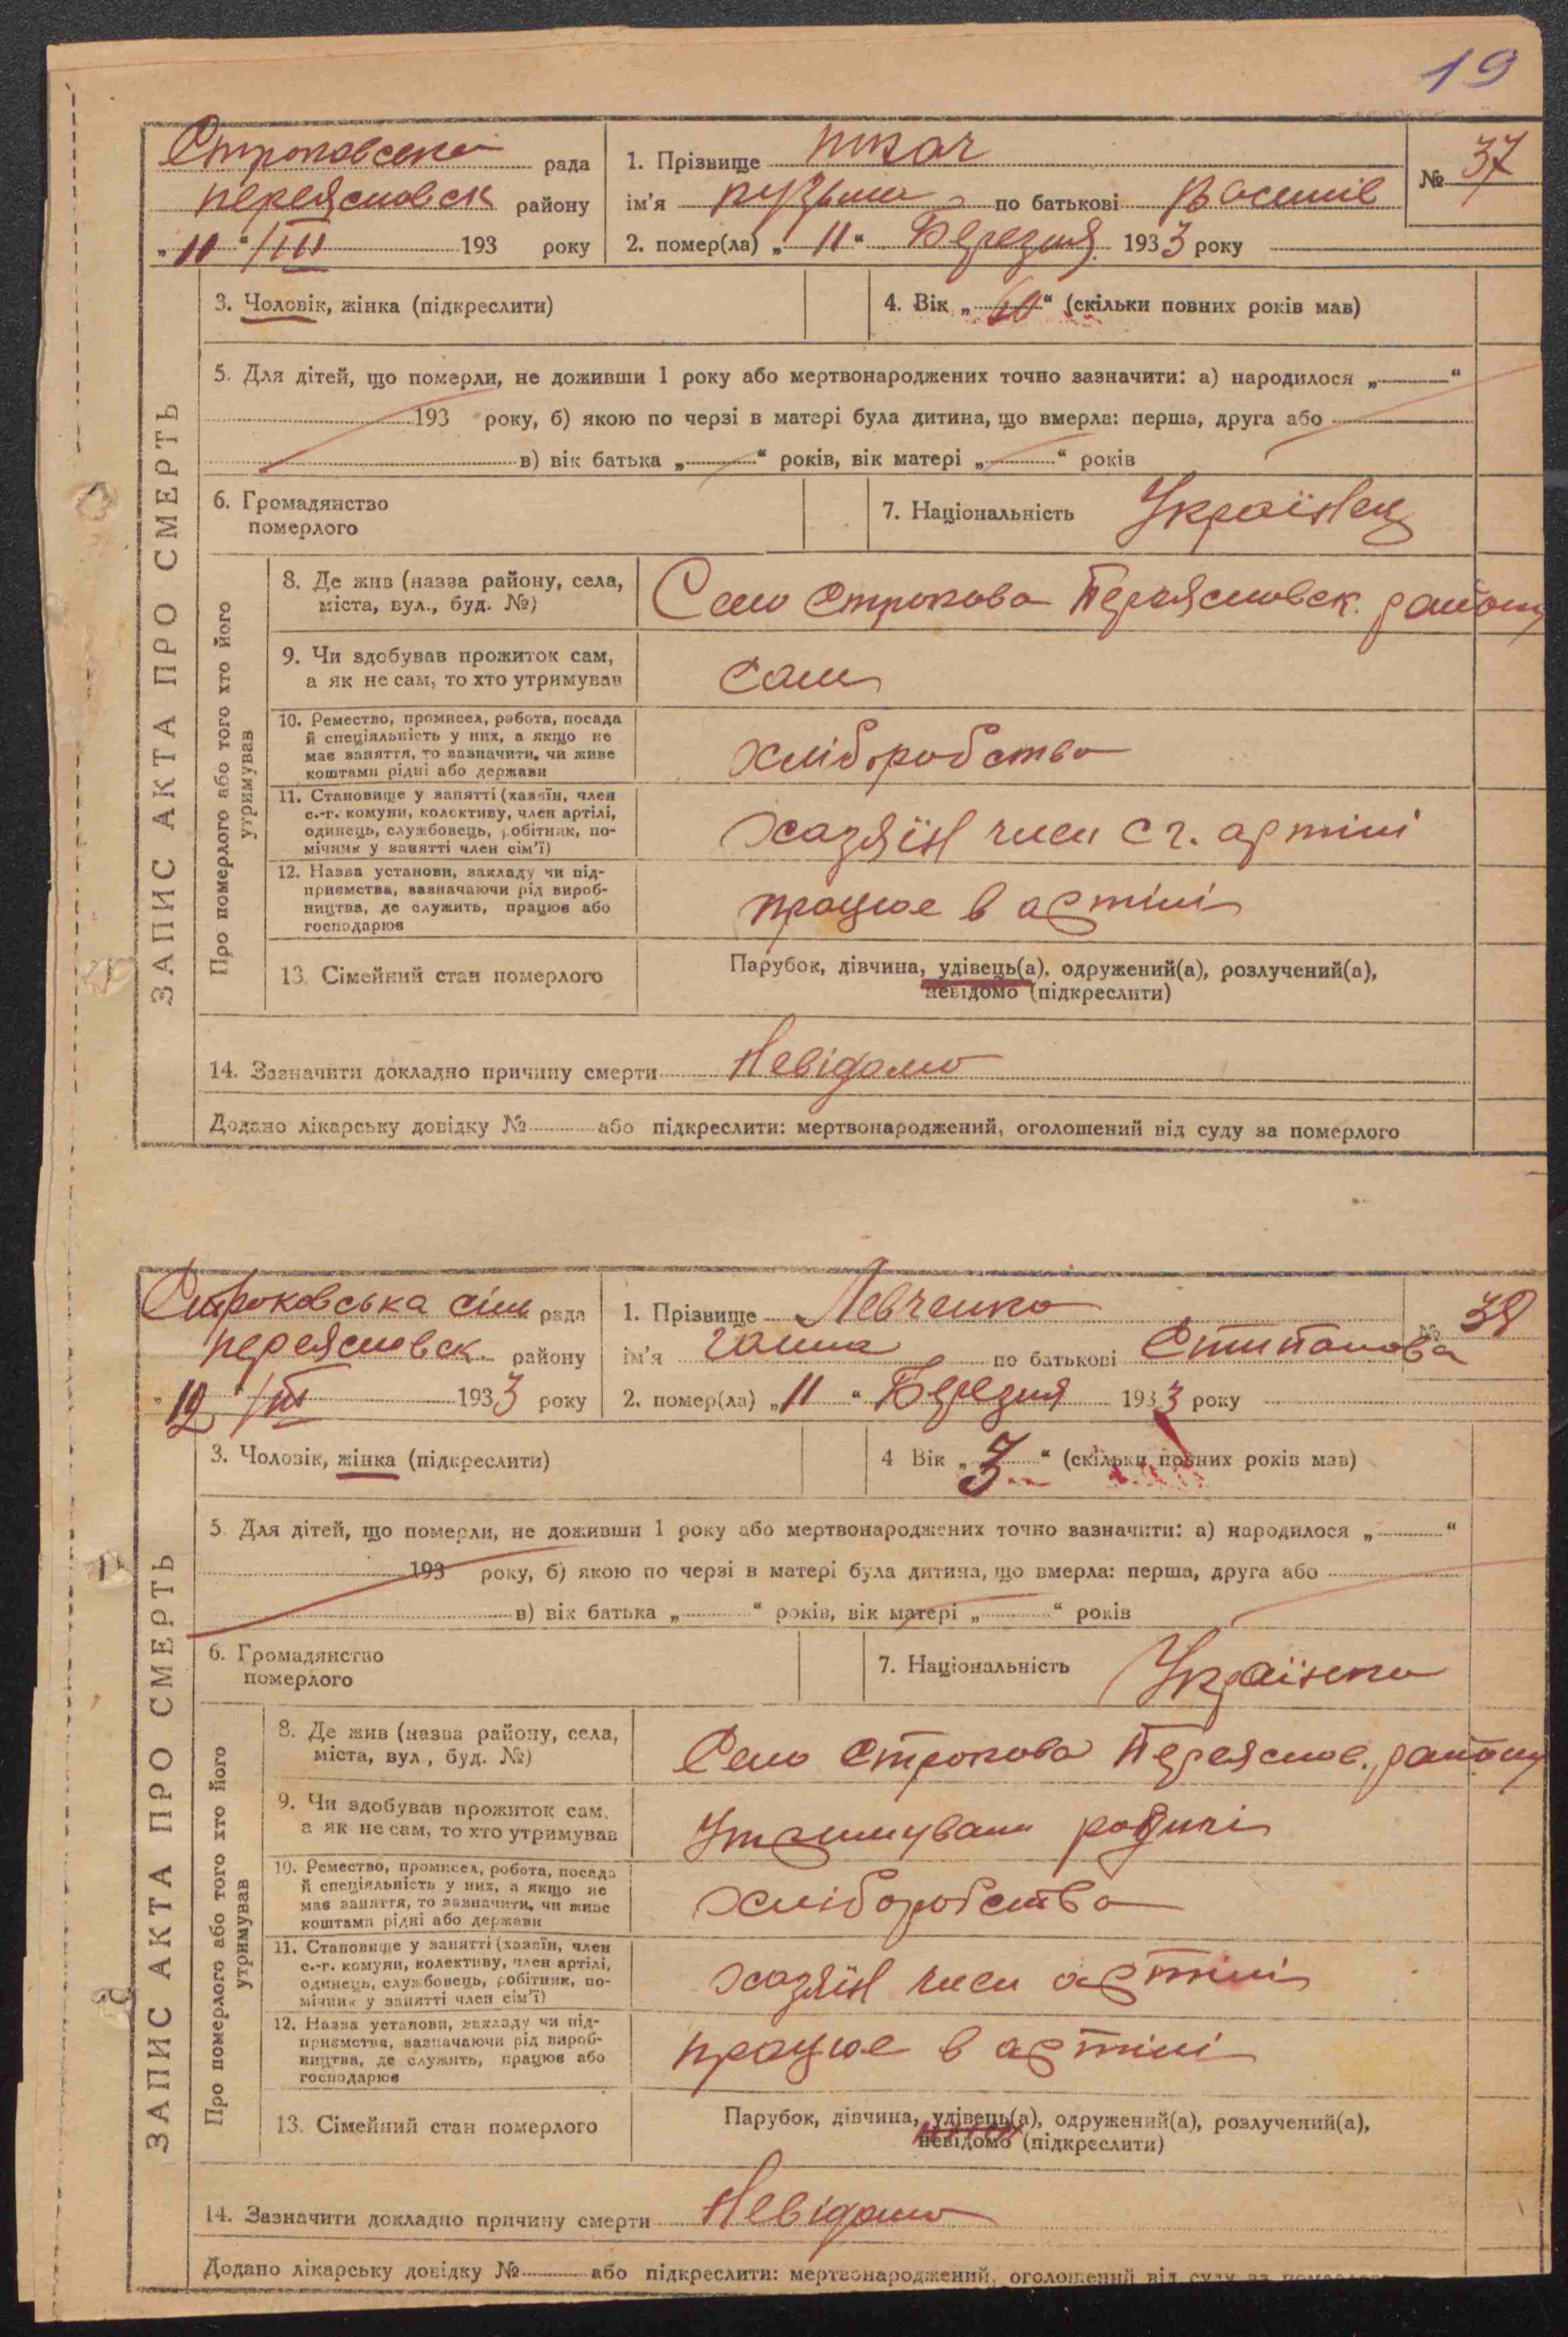 19
Строковська рада
Переяславськ району
„11“ /III 193 року
1. Прізвище Ткач
ім'я Кузьма по батькові Василів
№ 37
2. помер(ла) „11“ Березня 1933 року
3. Чоловік, жінка (підкреслити)
4. Вік „60“ (скільки повних років мав)
5. Для дітей, що померли, не доживши 1 року або мертвонароджених точно зазначити: а) народилося „ “
193 року, б) якою по черзі в матері була дитина, що вмерла: перша, друга або
в) вік батька „ “ років, вік матері „ “ років
6. Громадянство
померлого
7. Національність Українец
ЗАПИС АКТА ПРО СМЕРТЬ
Про померлого або того хто його
утримував
8. Де жив (назва району, села,
міста, вул., буд. №)
Село Строкова Переяславськ. району
9. Чи здобував прожиток сам,
а як не сам, то хто утримував
Сам
10. Ремество, промисел, робота, посада
й спеціяльність у них, а якщо не
має заняття, то зазначити, чи живе
коштами рідні або держави
хліборобство
11. Становище у занятті (хазяїн, член
с.-г. комуни, колективу, член артілі,
одинець, службовець, робітник, по-
мічник у занятті член сім'ї)
хазяїн член с г. артілі
12. Назва установи, закладу чи під-
приємства, зазначаючи рід вироб-
ництва, де служить, працює або
господарює
працює в артілі
13. Сімейний стан померлого
Парубок, дівчина, удівець(а), одружений(а), розлучений(а),
невідомо (підкреслити)
14. Зазначити докладно причину смерти Невідомо
Додано лікарську довідку № або підкреслити: мертвонароджений, оголошений від суду за померлого
Строковська сіль рада
Переяславськ. району
12 /III 1933 року
1. Прізвище Левченко
ім'я Ганна по батькові Степанова
№ 38
2. помер(ла) „11“ Березня 1933 року
3. Чоловік, жінка (підкреслити)
4 Вік „3“ (скільки повних років мав)
5. Для дітей, що померли, не доживши 1 року або мертвонароджених точно зазначити: а) народилося „ “
193 року, б) якою по черзі в матері була дитина, що вмерла: перша, друга або
в) вік батька „ “ років, вік матері „ “ років
6. Громадянство
померлого
7. Національність Українка
ЗАПИС АКТА ПРО СМЕРТЬ
Про померлого або того хто його
утримував
8. Де жив (назва району, села,
міста, вул., буд. №)
Село Строкова Переяслов. району
9. Чи здобував прожиток сам,
а як не сам, то хто утримував
Утримували родичі
10. Ремество, промисел, робота, посада
й спеціяльність у них, а якщо не
має заняття, то зазначити, чи живе
коштами рідні або держави
хліборобство
11. Становище у занятті (хазяїн, член
с.-г. комуни, колективу, член артілі,
одинець, службовець, робітник, по-
мічник у занятті член сім'ї)
хазяїн член артілі
12. Назва установи, закладу чи під-
приємства, зазначаючи рід вироб-
ництва, де служить, працює або
господарює
працює в артілі
13. Сімейний стан померлого
Парубок, дівчина, удівець(а), одружений(а), розлучений(а),
невідомо (підкреслити)
14. Зазначити докладно причину смерти Невідомо
Додано лікарську довідку № або підкреслити: мертвонароджений, оголошений від суду за померлого